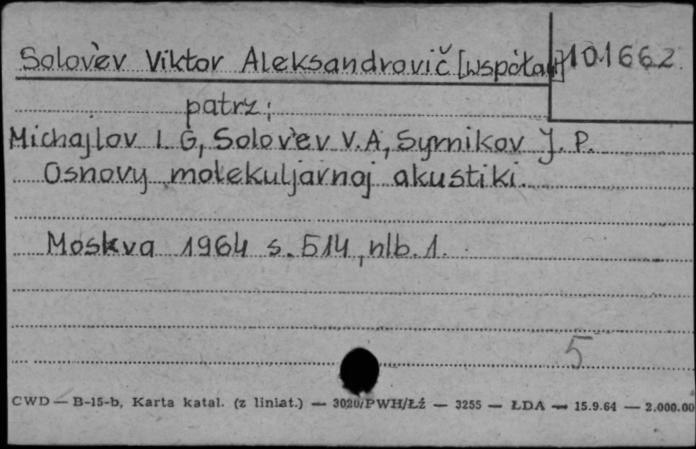 Solov'ev Viktor Aleksandrovič [współaut] 101662
patrz:
Michajlov I. G, Solov'ev V.A, Syrnikov J. P.
Osnovy molekuljarnoj akustiki.
Moskva 1964 s. 514, nlb. 1.
5
CWD — B-15-b, Karta katal. (z liniat.) — 3020/PWH/Łź — 3255 — ŁDA — 15.9.64 — 2.000.00